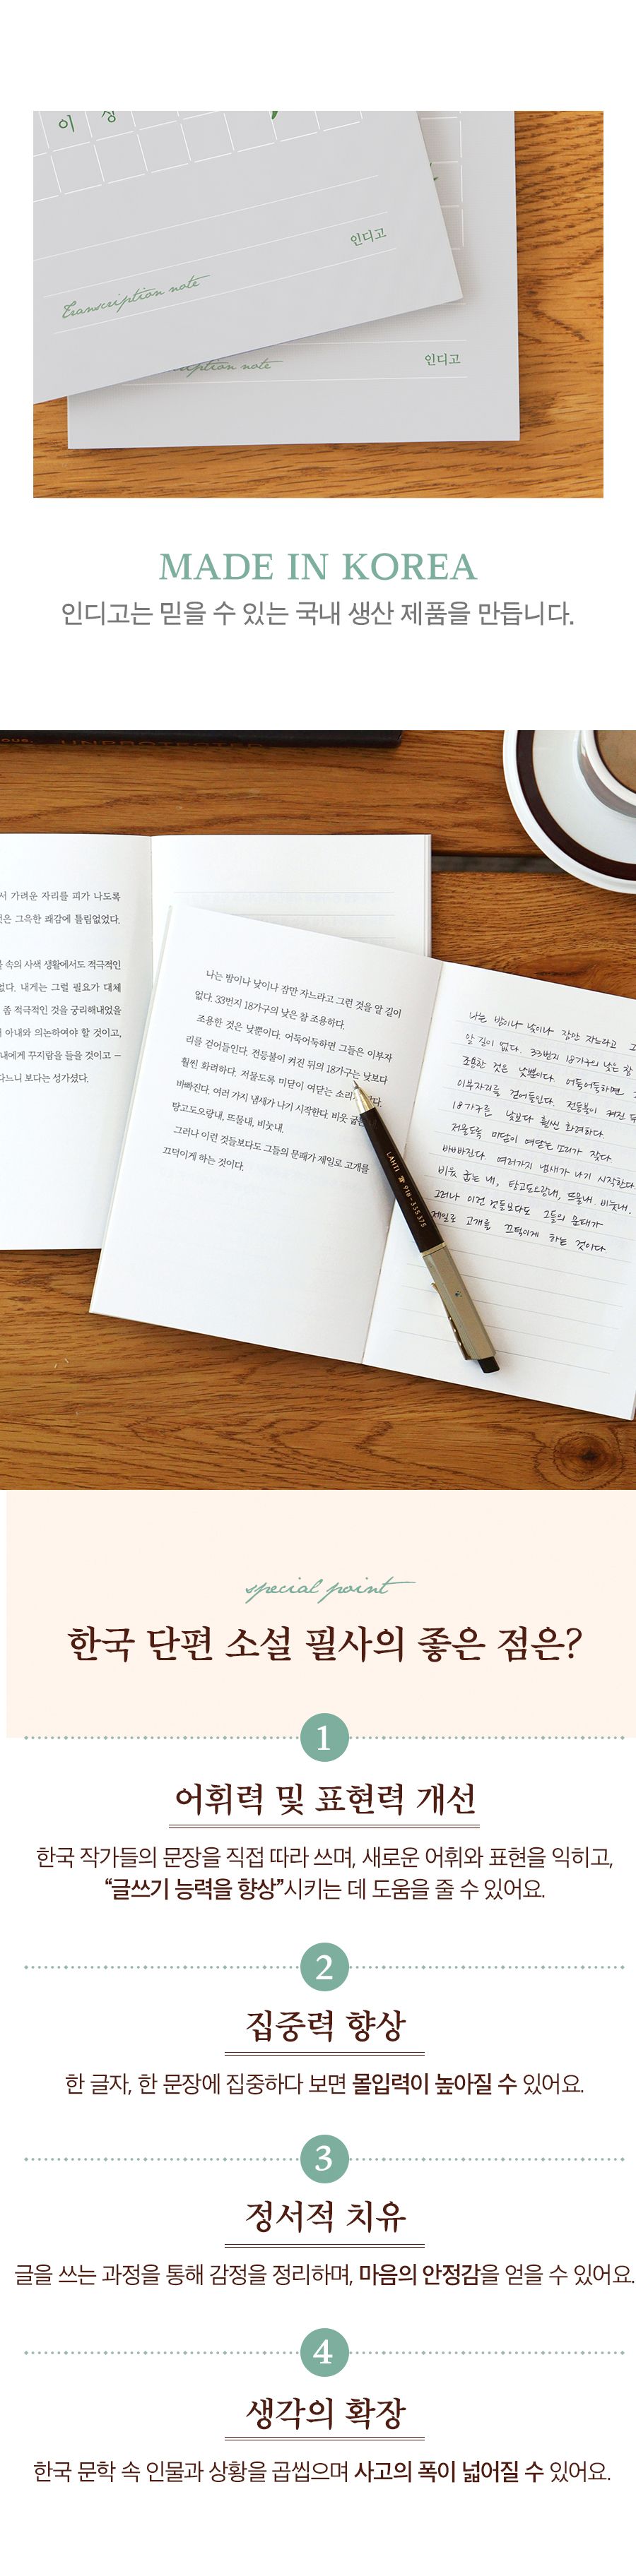 이 상
인디고
Transcription note
인디고
ption note
MADE IN KOREA
인디고는 믿을 수 있는 국내 생산 제품을 만듭니다.
서 가려운 자리를 피가 나도록
은 그윽한 쾌감에 틀림없었다.
속의 사색 생활에서도 적극적인
없다. 내게는 그럴 필요가 대체
좀 적극적인 것을 궁리해내었을
아내와 의논하여야 할 것이고,
내에게 꾸지람을 들을 것이고 –
다느니 보다는 성가셨다.
나는 밤이나 낮이나 잠만 자느라고 그런 것을 알 길이
없다. 33번지 18가구의 낮은 참 조용하다.
조용한 것은 낮뿐이다. 어둑어둑하면 그들은 이부자
리를 걷어들인다. 전등불이 켜진 뒤의 18가구는 낮보다
훨씬 화려하다. 저물도록 미닫이 여닫는 소리
바빠진다. 여러 가지 냄새가 나기 시작한다. 비웃 굽는
탕고도오랑내, 뜨물내, 비눗내.
그러나 이런 것들보다도 그들의 문패가 제일로 고개를
끄덕이게 하는 것이다.
LAHTI 918-335375
나는 밤이나 낮이나 잠만 자느라고
알 길이 없다. 33번지 18가구의 낮은 참
조용한 것은 낮뿐이다. 어둑어둑하면
이부자리를 걷어들인다. 전등불이 켜진
18가구는 낮보다 훨씬 화려하다.
저물도록 미닫이 여닫는 소리가 잦다.
바빠진다. 여러가지 냄새가 나기 시작한다.
비웃 굽는 내, 탕고도오랑내, 뜨물내, 비눗내.
그러나 이런 것들보다도 그들의 문패가
제일로 고개를 끄덕이게 하는 것이다
special point
한국 단편 소설 필사의 좋은 점은?
1
어휘력 및 표현력 개선
한국 작가들의 문장을 직접 따라 쓰며, 새로운 어휘와 표현을 익히고,
“글쓰기 능력을 향상”시키는 데 도움을 줄 수 있어요.
2
집중력 향상
한 글자, 한 문장에 집중하다 보면 몰입력이 높아질 수 있어요.
3
정서적 치유
글을 쓰는 과정을 통해 감정을 정리하며, 마음의 안정감을 얻을 수 있어요.
4
생각의 확장
한국 문학 속 인물과 상황을 곱씹으며 사고의 폭이 넓어질 수 있어요.